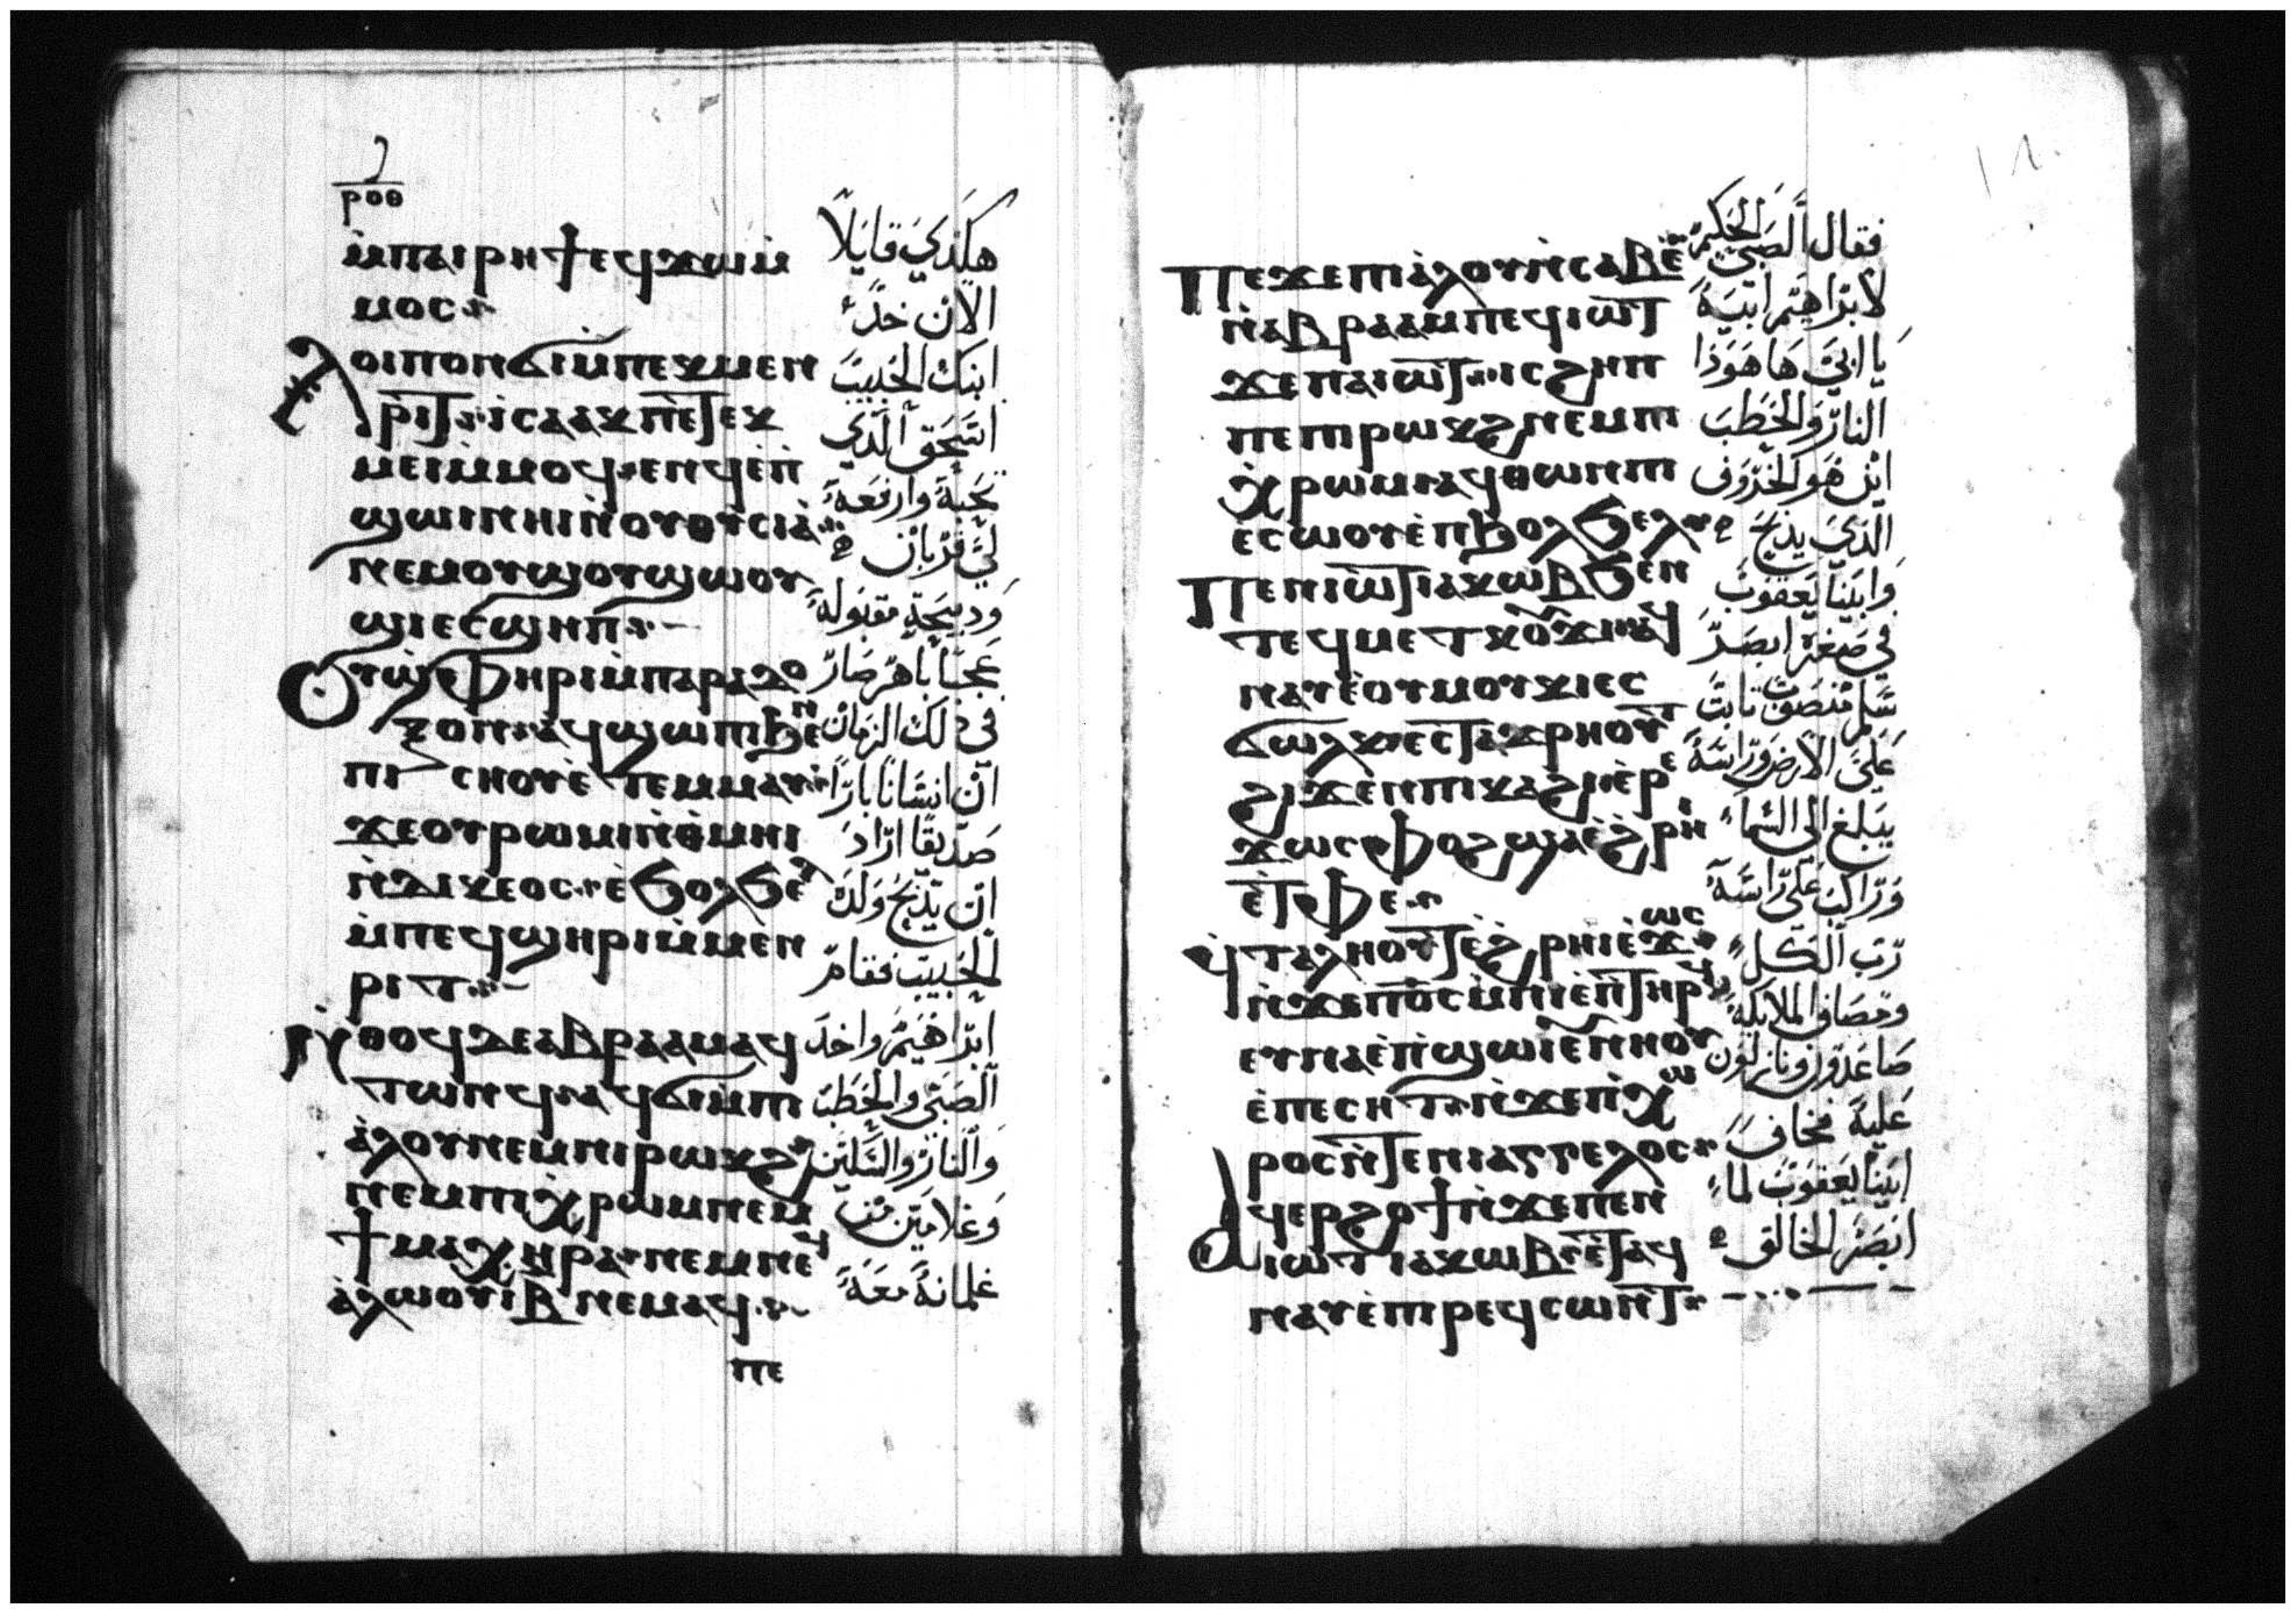 ⲣⲟⲑ
ⲙ̀ⲡⲁⲓⲣⲏϯ ⲉϥϫⲱ ⲙ̀
ⲙⲟⲥ
ⲗⲟⲓⲡⲟⲛ ϭⲓ ⲙ̀ⲡⲉⲕⲙⲉⲛ
ⲣⲓⲧ ⲓⲥⲁⲁⲕ ⲡⲉⲧⲉⲕ
ⲙⲉⲓ ⲙ̀ⲙⲟϥ ⲉⲛϥ ⲉⲡ̀
ϣⲱⲓ ⲛⲏⲓ ⲛ̀ⲟⲩⲑⲩⲥⲓⲁ̀
ⲛⲉⲙ ⲟⲩϣⲟⲩϣⲱⲟⲩ
ϣⲓ ⲉⲥϣⲏⲡ
ⲟⲩϣ̀ⲫⲏⲣⲓ ⲙ̀ⲡⲁⲣⲁⲇⲟ
ⲝⲟⲛ ⲁϥϣⲱⲡⲓ ϧⲉⲛ
ⲡⲓⲥⲛⲟⲩ ⲉ̀ⲧⲉⲙⲙⲁⲩ
ϫⲉ ⲟⲩⲣⲱⲙⲓ ⲛ̀ⲑ̀ⲙⲏⲓ
ⲛ̀ⲇⲓⲕⲉⲟⲥ ⲉ̀ϧⲟⲗϧⲉⲗ
ⲙ̀ⲡⲉϥϣⲏⲣⲓ ⲙ̀ⲙⲉⲛ
ⲣⲓⲧ
ⲛ̀ⲑⲟϥ ⲇⲉ ⲁⲃⲣⲁⲁⲙ ⲁϥ
ⲧⲱⲛϥ ⲁϥϭⲓ ⲙ̀ⲡⲓ
ⲁ̀ⲗⲟⲩ ⲛⲉⲙ ⲡⲓⲣⲱⲕϩ
ⲛⲉⲙ ⲡⲓⲭ̀ⲣⲱⲙ ⲛⲉⲙ
ϯⲙⲁⲭⲏⲣⲁ ⲛⲉⲙ ⲡⲉϥ
ⲁ̀ⲗⲱⲟⲩⲓ̀ ⲃ̅ ⲛⲉⲙⲁϥ
ⲡⲉ
هكذي قايلا
الان خذ
ابنك الحبيب
اسحق الذي
تحبه وارفعه
لي قربان
ودبيحة مقبوله
عجبا باهر صار
في ذلك الزمان
ان انسانا بارا
صديقا اراد
ان يذبح ولده
الحبيب فقام
ابراهيم واخد
الصبي والحطب
والنار والسكين
وغلامين من
غلمانه معه
ⲡⲉϫⲉ ⲡⲓⲁ̀ⲗⲟⲩ ⲛ̀ⲥⲁⲃⲉ̀
ⲛ̀ⲁⲃⲣⲁⲁⲙ ⲡⲉϥⲓⲱⲧ
ϫⲉ ⲡⲁⲓⲱⲧ ⲓⲥ ϩⲏⲡ
ⲡⲉ ⲡⲓⲣⲱⲕϩ ⲛⲉⲙ ⲡⲓ
ⲭ̀ⲣⲱⲙ ⲁϥⲑⲱⲛ ⲡⲓ
ⲉ̀ⲥⲱⲟⲩ ⲉ̀ⲡϧⲟⲗϧⲉⲗ
ⲡⲉⲛⲓⲱⲧ ⲓⲁⲕⲱⲃ ϧⲉⲛ
ⲧⲉϥⲙⲉⲧⲕⲟⲩϫⲓ ⲁϥ
ⲛⲁⲩ ⲉ̀ⲟⲩⲙⲟⲩⲕⲓ ⲉⲥ
ϭⲱⲗϫ ⲉⲥⲧⲁϫⲣⲏⲟⲩⲧ
ϩⲓϫⲉⲛ ⲡⲓⲕⲁϩⲓ ⲉ̀ⲣⲉ
ϫⲱⲥ ⲫⲟϩ ϣⲁ ⲉ̀ϩ̀ⲣⲏⲓ
ⲉ̀ⲧⲫⲉ
ϥ̀ⲧⲁⲗⲏⲟⲩⲧ ⲉ̀ϩ̀ⲣⲏⲓ ⲉ̀ϫⲱⲥ
ⲛ̀ϫⲉ ⲡ̀ⲟ̅ⲥ̅ ⲙ̀ⲡⲓⲉ̀ⲡⲧⲏⲣϥ
ⲉⲩⲛⲁ ⲉ̀ⲡ̀ϣⲱⲓ ⲉⲩⲛⲏⲟⲩ
ⲉ̀ⲡⲉⲥⲏⲧ ⲛ̀ϫⲉ ⲡⲓⲭⲱ
ⲣⲟⲥ ⲛ̀ⲧⲉ ⲛⲓⲁⲅⲅⲉⲗⲟⲥ
ⲁϥⲉⲣϩⲟϯ ⲛ̀ϫⲉ ⲡⲉⲛ
ⲓⲱⲧ ⲓⲁⲕⲱⲃ ⲉ̀ⲧⲁϥ
ⲛⲁⲩ ⲉ̀ⲡⲓⲣⲉϥⲥⲱⲛⲧ
فقال الصبي الحكيم
لابراهيم ابيه
يا ابي ها هوذا
النار والحطب
اين هو الخروف
الذي يذبح
وابينا يعقوب
في صغره ابصر
سلم منصوب تابت
على الارض وراسه
يبلغ الى السماء
وراكب على راسه
رب الكل
ومصاف الملايكه
صاعدون ونازلون
عليه فخاف
ابينا يعقوب لما
ابصر الخالق